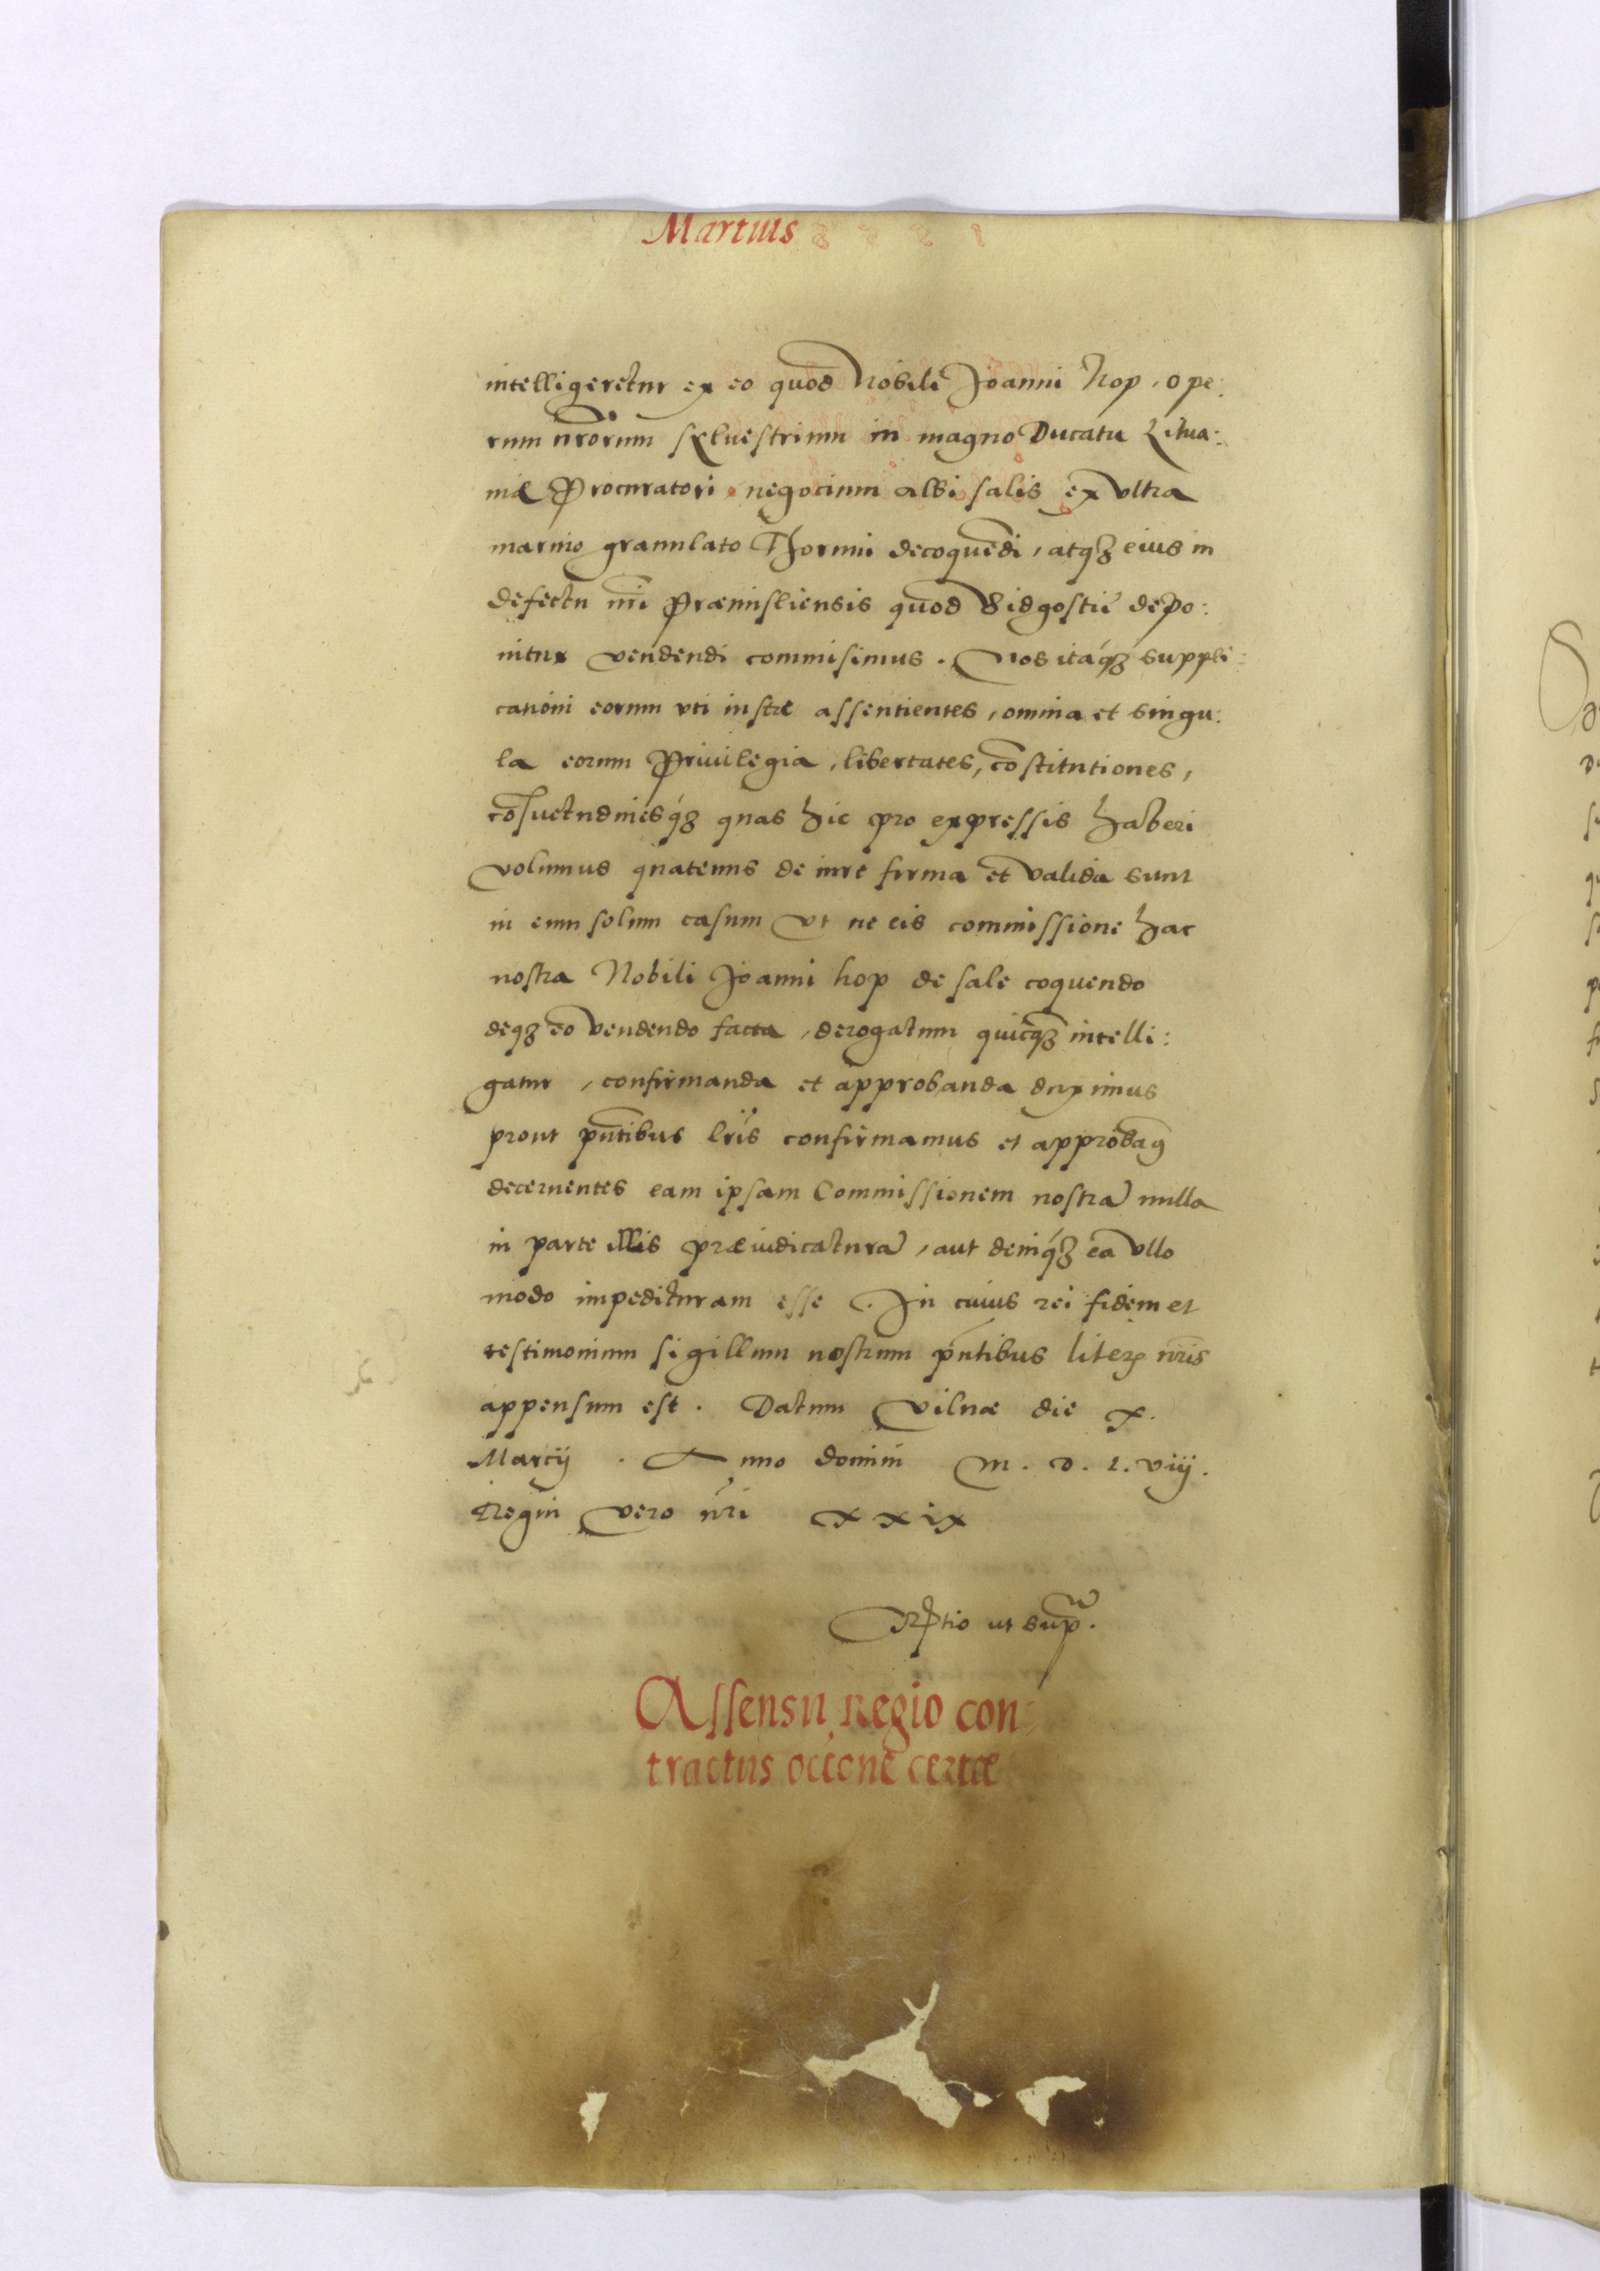 Martius
intelligeretur ex eo quod Nobili Joanni Hop, ope:
rum nrorum sylvestrium in magno Ducatu Litua:
niæ Procuratori, negocium albi salis ex ultra
marino granulato Thorunii decoquēdi, atq3 eius in
defectu nri Præmisliensis quod Bidgostiē depo:
nitur vendendi commisimus. Nos itaq3 suppli:
cationi eorum uti iustæ assentientes, omnia et singu:
la eorum Privilegia, libertates, cōstitutiones,
cōsuetudinesq3 quas hic pro expressis haberi
volumus quatenus de iure firma et valida sunt
in eum solum casum ut ne eis commissione hac
nostra Nobili Joanni hop de sale coquendo
deq3 eo vendendo facta, derogatum quicq3 intelli:
gatur, confirmanda et approbanda duximus
prout pntibus lris confirmamus et approbam9
decernentes eam ipsam Commissionem nostrā nulla
in parte illis præiudicaturā, aut deniq3 eā ullo
modo impedituram esse. In cuius rei fidem et
testimonium sigillum nostrum pntibus literis nris
appensum est. Datum Vilnæ die X.
Marcij. Anno domini M. D. L. viij.
Regni vero nri XXIX
Rptio ut supra.
Assensu Regio con:
tractus occone certæ